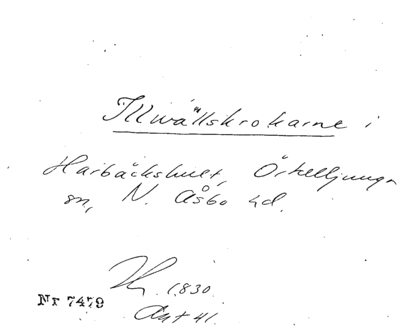 Illwällskrokarne i
Harbäckshult, Örkelljunga
sn, N. Åsbo hd.
1830.
Nr 7479
Akt 41.